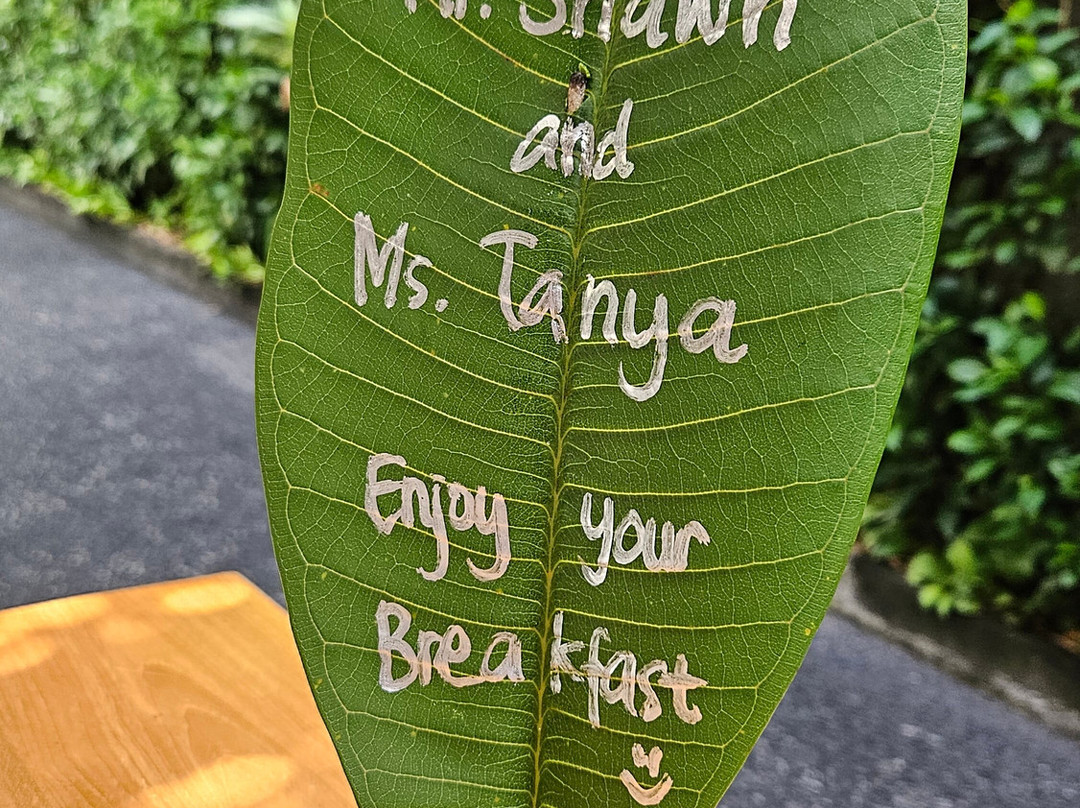 Mr. Shawn
and
Ms. Tanya
Enjoy your
Breakfast